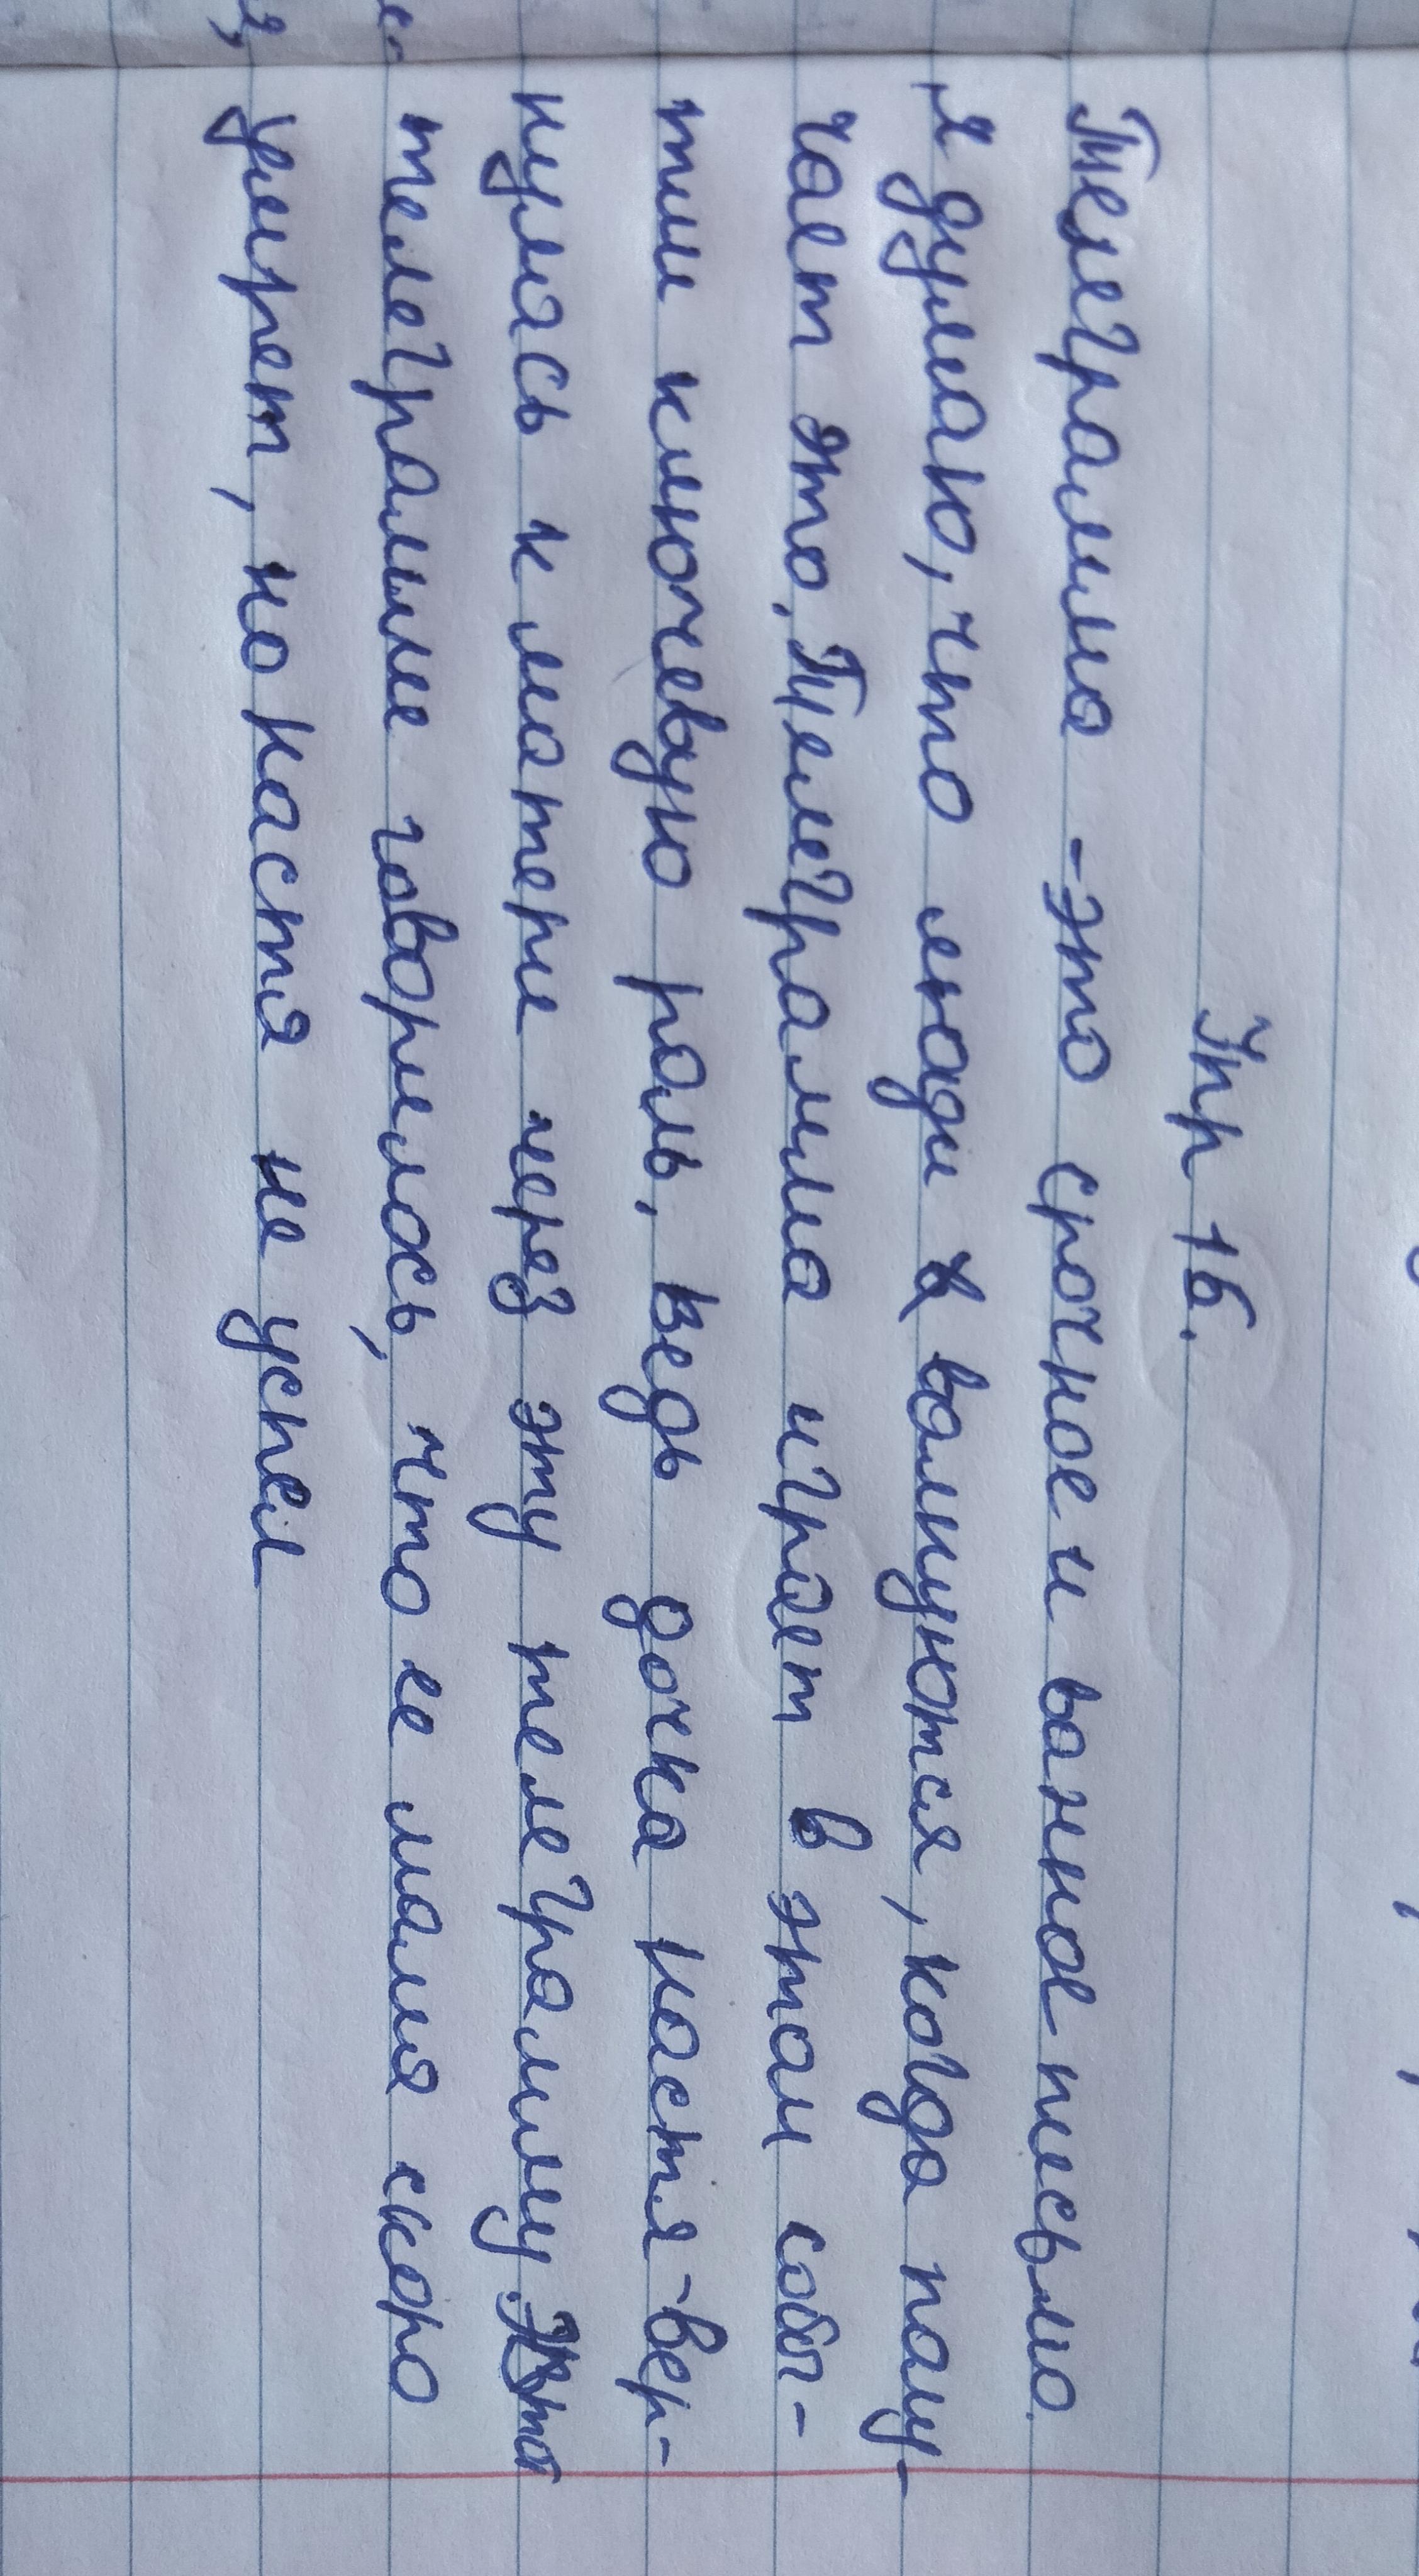 Упр 16.
Телеграмма - это срочное и важное письмо.
я думаю, что люди волнуются, когда полу-
чает это. Телеграмма играет в этом собы-
тии ключевую роль, ведь дочка Настя вер-
нулась к матери через эту телеграмму.
телеграмме говорилось, что ее мама скоро
умрет, но Настя не успел